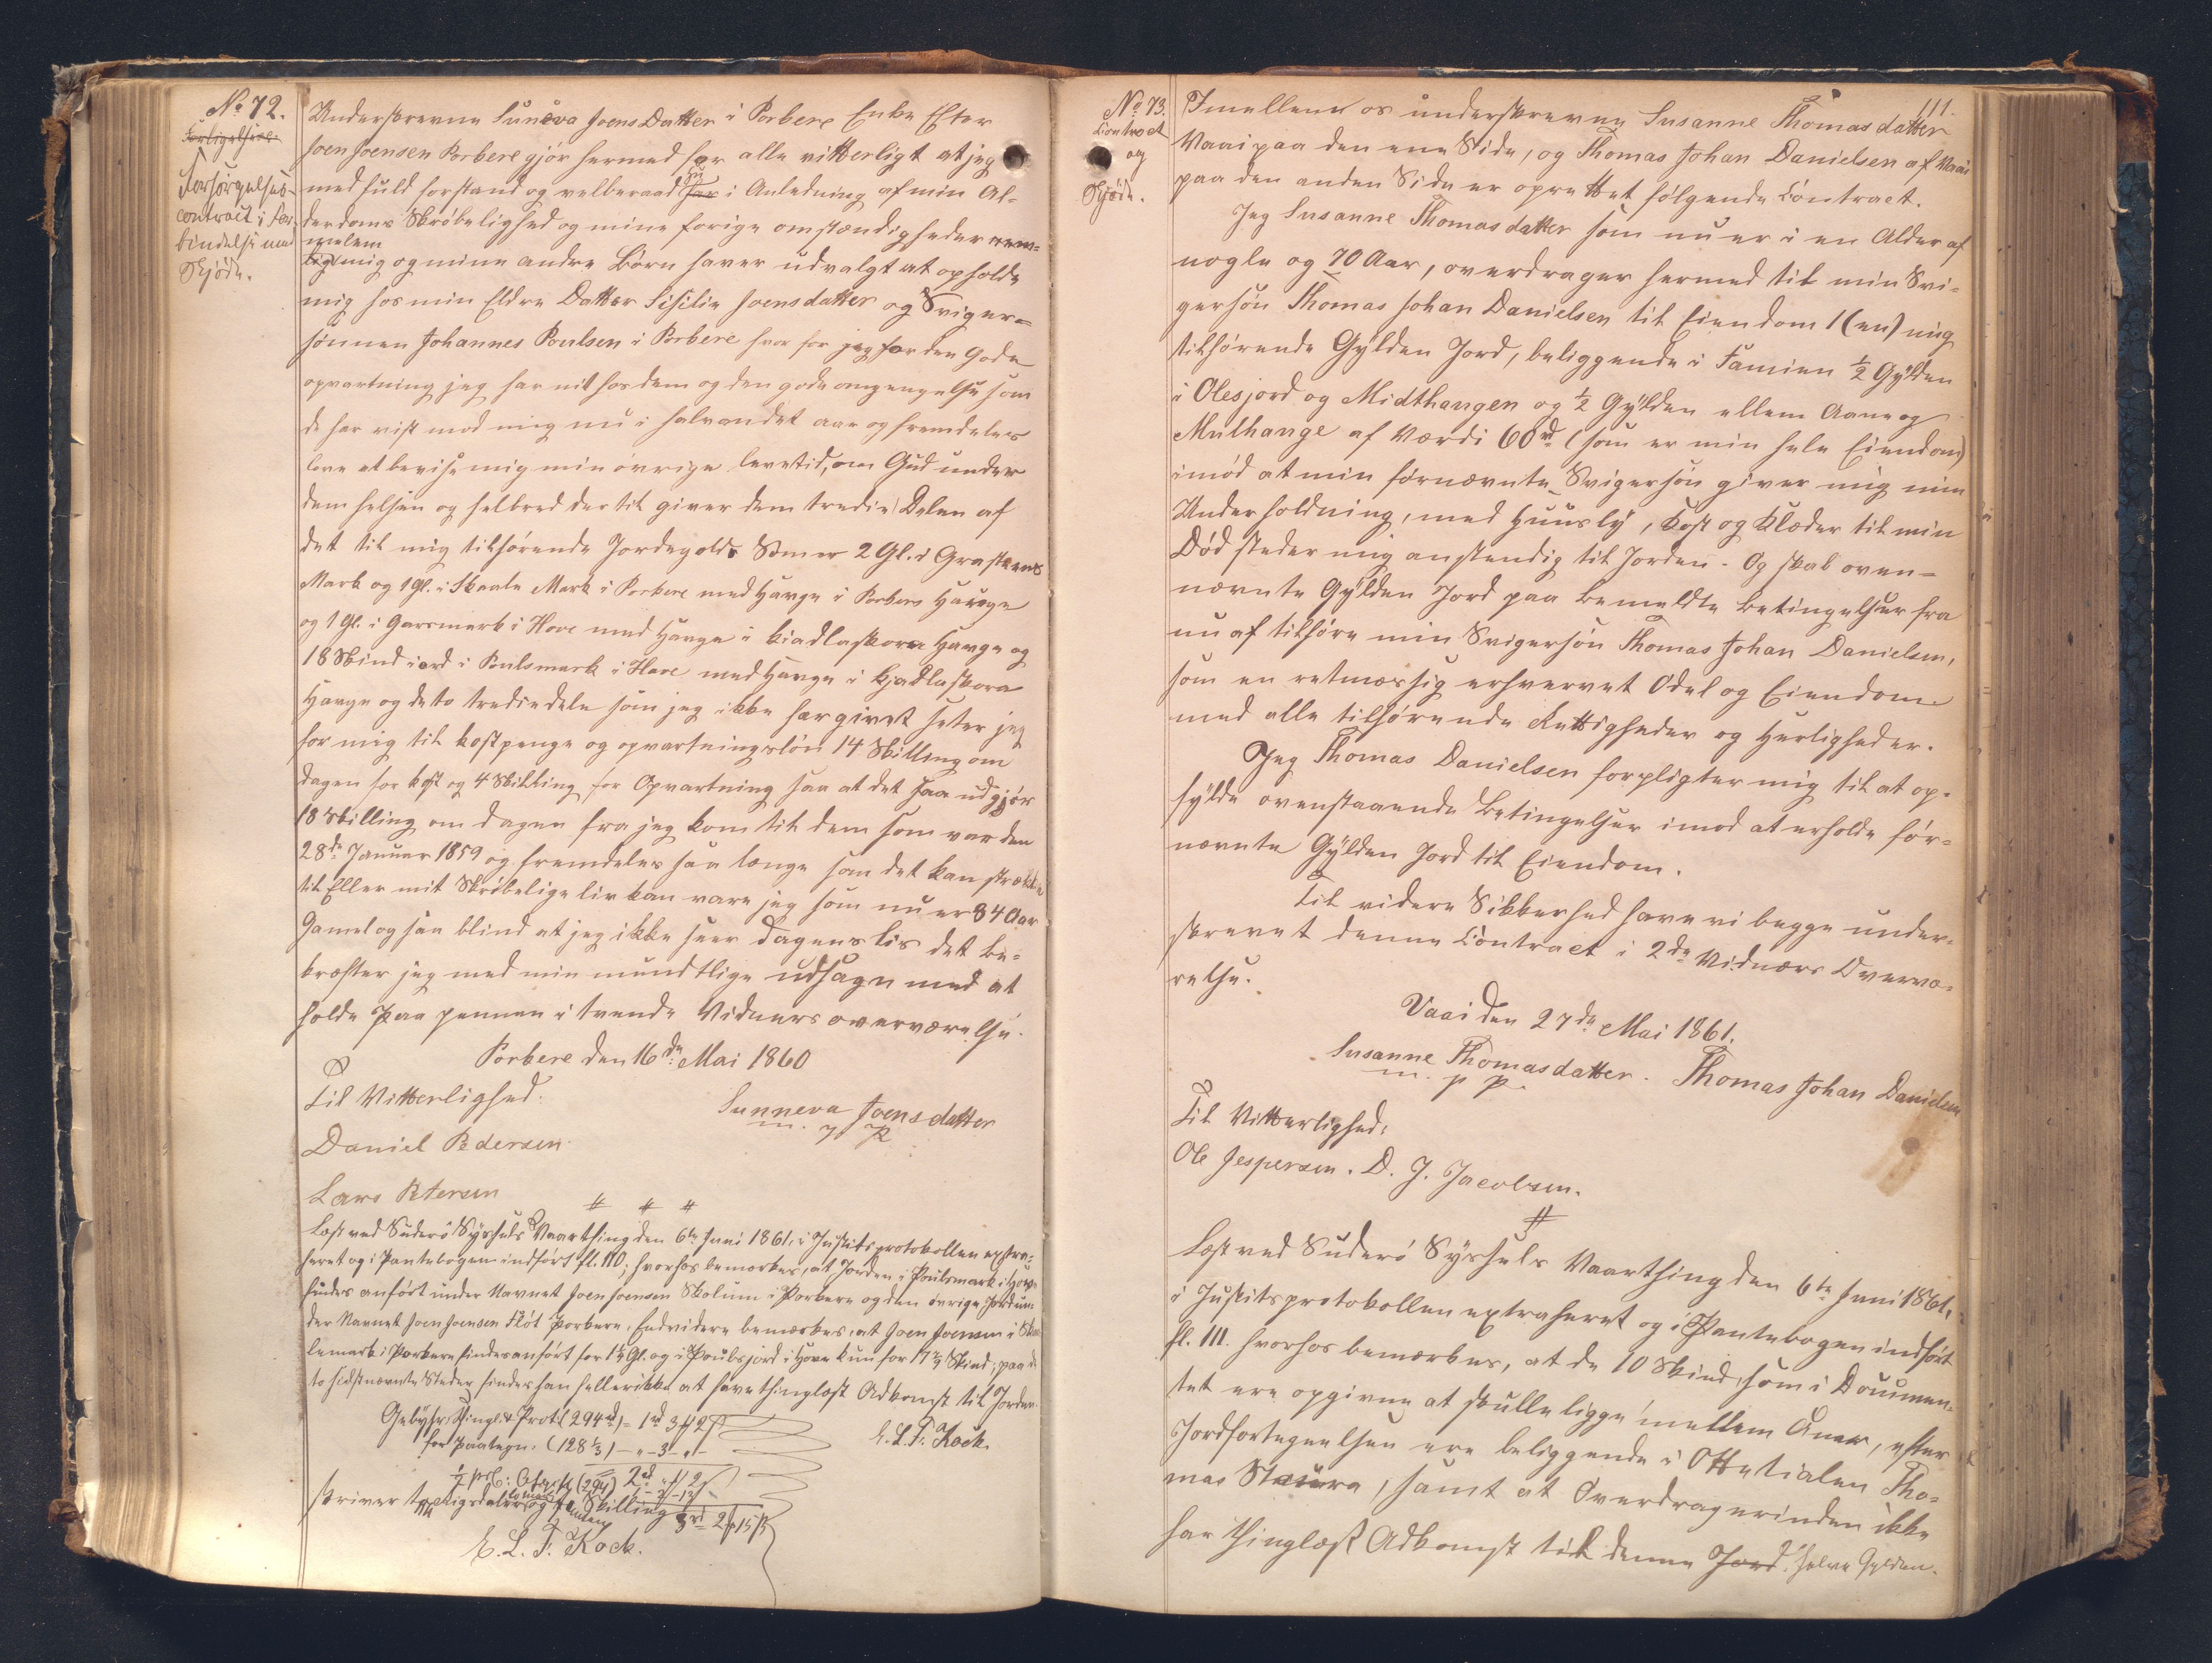 No 72.
Forligelses
Forsörgelses-
contract i For-
bindelse med
Skjöde.
Underskrevne Sunëva Joens Datter i Porbere Enke Efter
Joen Joensen Porbere gjör hermed for alle vitterligt at jeg
med fuld forstand og velberaad Hu i Anledning af min Al-
derdoms Skröbelighed og mine forige omstændigheder nem-
lig imelem mig og mine andre Börn haver udvalgt at opholde
mig hos min Eldre Datter Sisilie Joensdatter og Sviger-
sönnen Johannes Poulsen i Porbere hvor for jeg for den Gode
opvartning jeg har nit hos dem og den gode omgengelse som
de har vist mod mig nu i halvandet aar og fremdeles
love at bevise mig min övrige levetid, om Gud under
dem helsen og helbred dertil giver dem tredie Delen af
det til mig tilhörende Jordegolds Som er 2 Gl. i Grasteens
Mark og 1 Gl. i Skaale Mark i Porkere med Hauge i Porbers Hauge
og 1 Gl. i Garsmark i Hove med Hauge i kiadlaskora Hauge og
18 Skind iord i Poulsmark i Hove med Hauge i kjadlaskora
Hauge og de to trediedele som jeg ikke har givet seter jeg
for mig til kostpenge og opvartningslön 14 Skilling om
dagen for kost og 4 Skilling for Opvartning saa at det saa udgjör
18 Skilling om dagen fra jeg kom til dem som var den
28de Januar 1859 og fremdeles saa længe som det kan strække
til Eller mit Skröbelige liv kan vare jeg som nu er 84 Aar
Gamel og saa blind at jeg ikke seer dagens lis det be-
kræfter jeg med min mundtlige udsagn med at
holde Paa pennen i tvende Vidners overværelse.
Porbere den 16de Mai 1860
Til Vitterlighed:
Sunneva Joensdatter
m. p P
Daniel Pedersen
Lars Petersen
# # #
Læst ved Suderö Syssels Vaarthing den 6te Juni 1861, i Justitsprotokollen extra-
heret og i Pantebogen indfört fl. 110; hvorhos bemærkes, at Jorden i Poulsmark i Hove
findes anfört under Navnet Joen Joensen Skolum i Porkere og den övrige Jord un-
der Navnet Joen Joensen Flöt Porkere. Endvidere bemærkes, at Joen Joensen i Skaa-
lemark i Porkere findes anfört for 1 1/4 Gl. og i Poulsjord i Hove kun for 17 Skind; paa de
to sidstnævnte Steder findes han heller ikke at have thinglæst Adkomst til Jorden.
Gebyhr: Thingl. & Prot. (294rd) = 1rd 3 # 2ß
for Paategn. (128 1/3) - " - 3 - " -
E. L. T. Kock.
1/2 prC: Afgift (294) 2rd " # 2ß
skriver tre Rigsdaler to Mark og femten Skilling 3rd 2 # 15ß
E. L. T. Kock.
111.
No 73.
Contract
og
Skjöde.
Imellem os underskrevne Susanne Thomasdatter
Vaai paa den ene Side, og Thomas Johan Danielsen af Vaai
paa den anden Side er oprettet fölgende Contract.
Jeg Susanne Thomasdatter som nu er i en Alder af
nogle og 70 Aar, overdrager hermed til min Svi-
gersön Thomas Johan Danielsen til Eiendom 1 (en) mig
tilhörende Gylden Jord, beliggende i Famien 1/2 Gylden
i Olesjord og Midthaugen og 1/2 Gylden ellem Aane og
Mulhange af Værdi 60rd (som er min hele Eiendom)
imod at min fornævnte Svigersön giver mig min
Underholdning, med Huusly, Kost og Klæder til min
Död steder mig anstendig til Jorden. Og skal oven-
nævnte Gylden Jord paa bemeldte Betingelser fra
nu af tilhöre min Svigersön Thomas Johan Danielsen,
som en retmæssig erhvervet Odel og Eiendom
med alle tilhörende Rettigheder og Herligheder.
Jeg Thomas Danielsen forpligter mig til at op-
fylde ovenstaaende Betingelser imod at erholde för-
nævnte Gylden Jord til Eiendom.
Til videre Sikkerhed have vi begge under-
skrevet denne Contract i 2de Vidnærs Overvæ-
relse.
Vaai den 27de Mai 1861.
Susanne Thomasdatter. Thomas Johan Danielsen
m. p P.
Til Vitterlighed:
Ole Jespersen. D. J. Jacobsen.
#
Læst ved Suderö Syssels Vaarthing den 6te Juni 1861,
i Justitsprotokollen extraheret og i Pantebogen indfört
fl. 111. hvorhos bemærkes, at de 10 Skind, som i Documen-
tet ere opgivne at skulle ligge imellem Aaner, efter
Jordfortegnelsen ere beliggende i Ottetialen Tho-
mas Staura, samt at Overdragerinden ikke
har thinglæst Adkomst til denne Jord. halve Gylden.